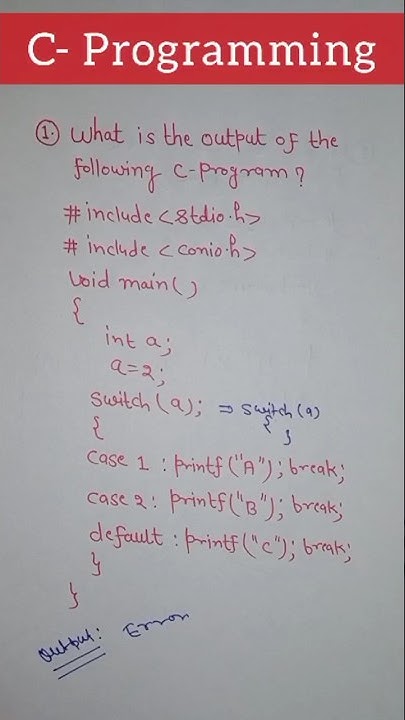 C- Programming
1. What is the output of the
following C-program?
#include <stdio.h>
# include <conio.h>
void main()
{
int a;
a=2;
switch (a); ⇒ switch (a)
{ { }
case 1 : printf("A"); break;
case 2: printf("B"); break;
default : printf("C"); break;
}
}
Output: Error